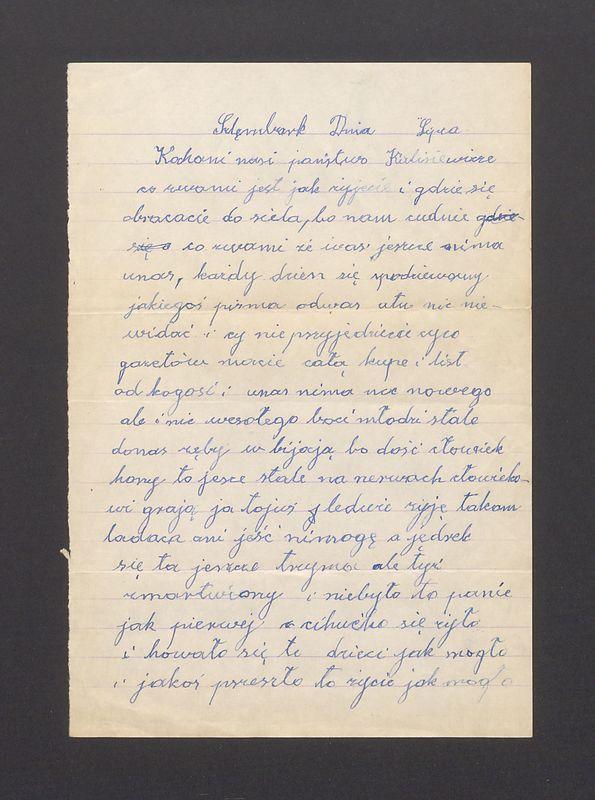 Szlęmbark Dnia Lipca
Kochani nasi państwo Kalisiewicze
co zwami jest jak żyjecie i gdzie się
obracacie do sieta, bo nam cudnie gdzie
się co zwami że iwas jeszcze nima
unas, każdy dzień się spodziewomy
jakiegoś pisma odwas atu nic nie-
widać i cy nie przyjedziecie cyco
gazetów macie całą kupe i list
od kogosi i unas nima nic nowego
ale i nic wesołego boci młodzi stale
donas zęby w bijają bo dość człowiek
hony to jesce stale na nerwach człowieko-
wi grają ja tojuś ledwie zyję takam
ladaca ani jeść nimogę a jędrek
się ta jeszcze trzyma ale tyż
zmartwiony i niebyło to panie
jak pierwej cihućko się zyło
i howało się te dzieci jak mogło
i jakoś przeszło to życie jak mogło